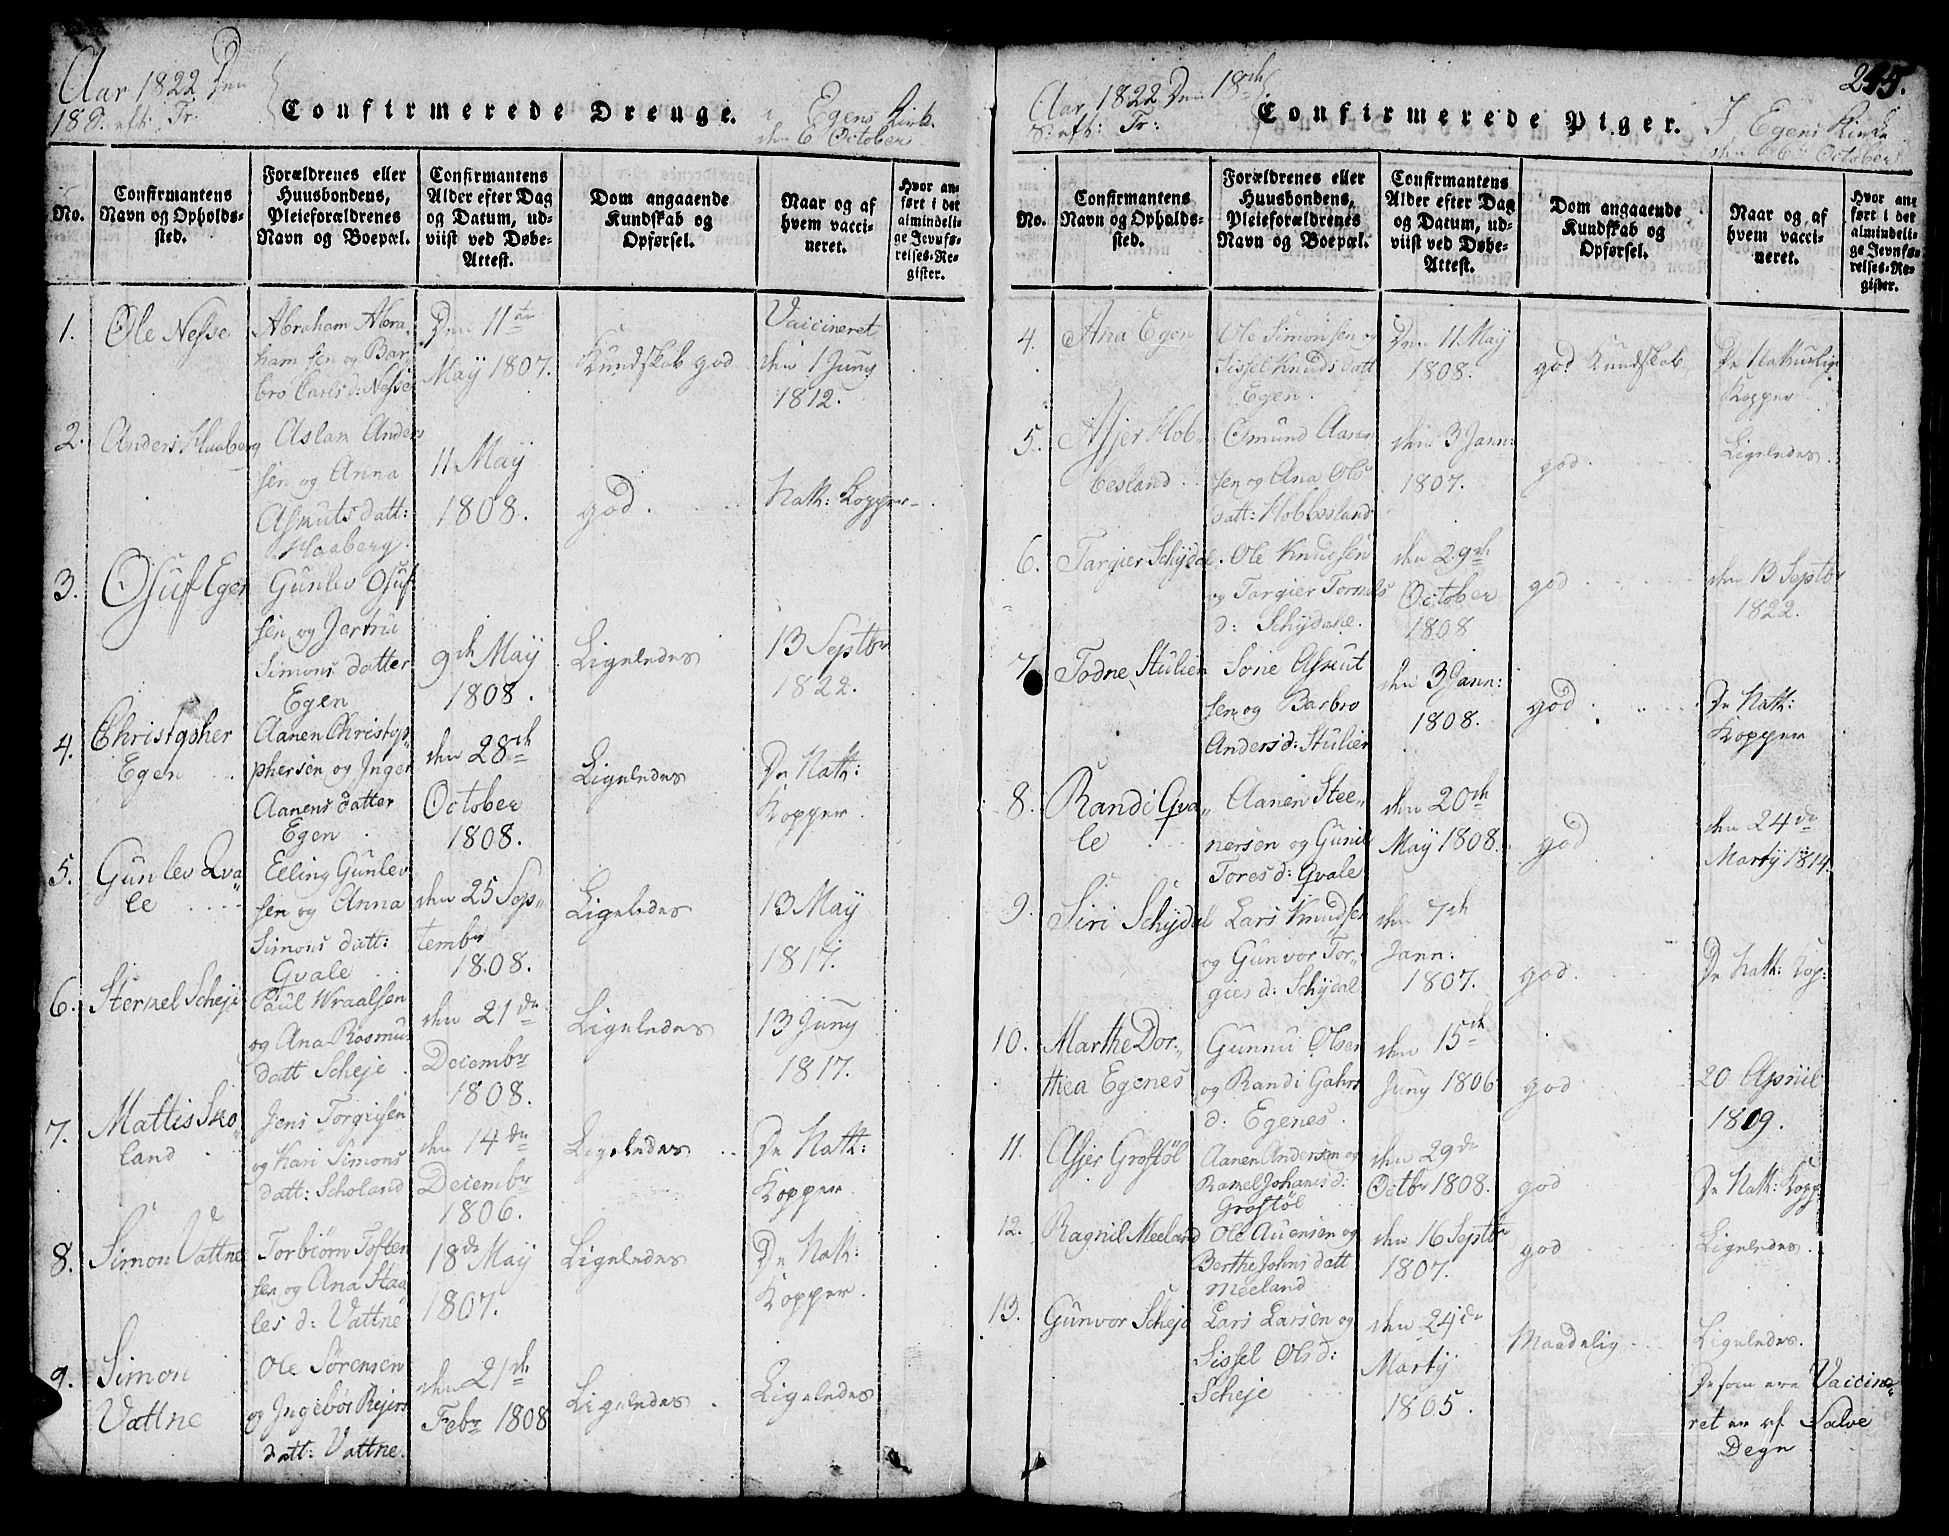 Aar 1822 Den
18 S. eft: Tr.
Confirmerede Drenge.
i Egens Kirk.
den 6 October
No.
Confirmantens
Navn og Opholds-
sted.
Forældrenes eller
Huusbondens,
Pleieforældrenes
Navn og Boepæl.
Confirmantens
Alder efter Dag
og Datum, ud-
viist ved Døbe-
Attest.
Dom angaaende
Kundskab og
Opførsel.
Naar og af
hvem vacci-
neret.
Hvor an-
ført i det
almindeli-
ge Jevnfø-
relses-Re-
gister.
1.
Ole Nesse
Abraham Abra-
ham sen og Bar
bro Carls d: Nesse
Den 11te
May 1807.
Kundskab god
Vaccineret
den 1 Juny
1812.
2.
Anders Haaberg
Aslan Anders
sen og Anna
Asmuts datt:
Haaberg.
11 May
1808.
god.
Nath: Kopper
3.
Osuf Egen
Gunlev Osuf
sen og Jertru
Simons datter
Egen
9de May
1808.
Ligeledes
13 Septbr
1822.
4.
Christopher
Egen
Aanen Christop
phersen og Inger
Aanens datter
Egen
den 28de
October
1808.
Ligeledes
De Nath:
Kopper.
5.
Gunlev Qva
le
Elling Gunlev
sen og Anna
Simons datt:
Qvale
den 25 Sep
tembr
1808.
Ligeledes
13 May
1817.
6.
Sternel Scheje
Paul Wraalsen
og Ana Rasmu
datt Scheje
den 21de
Decembr
1808.
Ligeledes
13 Juny
1817.
7.
Mattis Sko
land
Jens Torgiusen
og Kari Simons
datt: Scholand
den 14de
Decembr
1806.
Ligeledes
De Nath:
Kopper
8.
Simon Vattne
Torbiørn Tosten
sen og Ana Staa
les d: Vattne
18de May
1807.
Ligeledes
De Nath:
Kopper.
9.
Simon
Vattne
Ole Sørensen
og Ingebør Rejers
datt: Vattne.
den 21de
Febr 1808
Ligeledes
Ligeledes
245.
Aar 1822 Den 18de
S: eft: Tr:
Confirmerede Piger.
I Egens Kirke
den 6te October
No.
Confirmantens
Navn og Opholds-
sted.
Forældrenes eller
Huusbondens,
Pleieforældrenes
Navn og Boepæl.
Confirmantens
Alder efter Dag
og Datum, ud-
viist ved Døbe-
Attest.
Dom angaaende
Kundskab og
Opførsel.
Naar og af
hvem vacci-
neret.
Hvor an-
ført i det
almindeli-
ge Jevnfø-
relses-Re-
gister.
4.
Ana Egen
Ole Simonsen og
Sissel Knuds datt
Egen.
Den 11 May
1808.
god Kundskab
De Naturlige
Kopper
5.
Asjer Hob
besland
Osmund Aanen
sen og Ana Ols
datt: Hobbesland
den 3 Jann:
1807.
god.
Ligeledes.
6.
Targier Schydal
Ole Knudsen
og Targier Tornes
d: Schydahl.
den 29de
October
1808
god
den 13 Septbr
1822.
7.
Todne Stulien
Sørie Asmut
sen og Barbro
Anders d: Stulien
den 3 Jann:
1808.
god
De Nath:
Kopper
8.
Randi Qva
le
Aanen Stee
nersen og Gunil
Tores d: Qvale
den 20de
May 1808.
god
den 24de
Martÿ 1814.
9.
Siri Schydal
Lars Knudsen
og Gunvor Tor
gies d: Schydal
den 7de
Jann:
1807.
god
De Nath: Kop:
10.
Marthe Dor
thea Egenes
Gunnu Olsen
og Randi Gahrs
d: Egenes
den 15de
Juny 1806
god
20 Apriil
1809.
11.
Asjer Grostøl
Aanen Andersen og
Ramel Johanis d:
Grostøl
den 29de
Octbr 1808.
god
De Nath: Kopp:
12.
Ragnil Meeland
Ole Auensen og
Berthe Johns datt
Meeland
den 16 Septbr
1807.
god
Ligeledes.
13.
Gunvor Scheje
Lars Larsen og
Sissel Ols d:
Scheje
den 24de
Martÿ
1805.
Maadelig
Ligeledes.
De som ere Vaccine
ret er af Salve
Degn